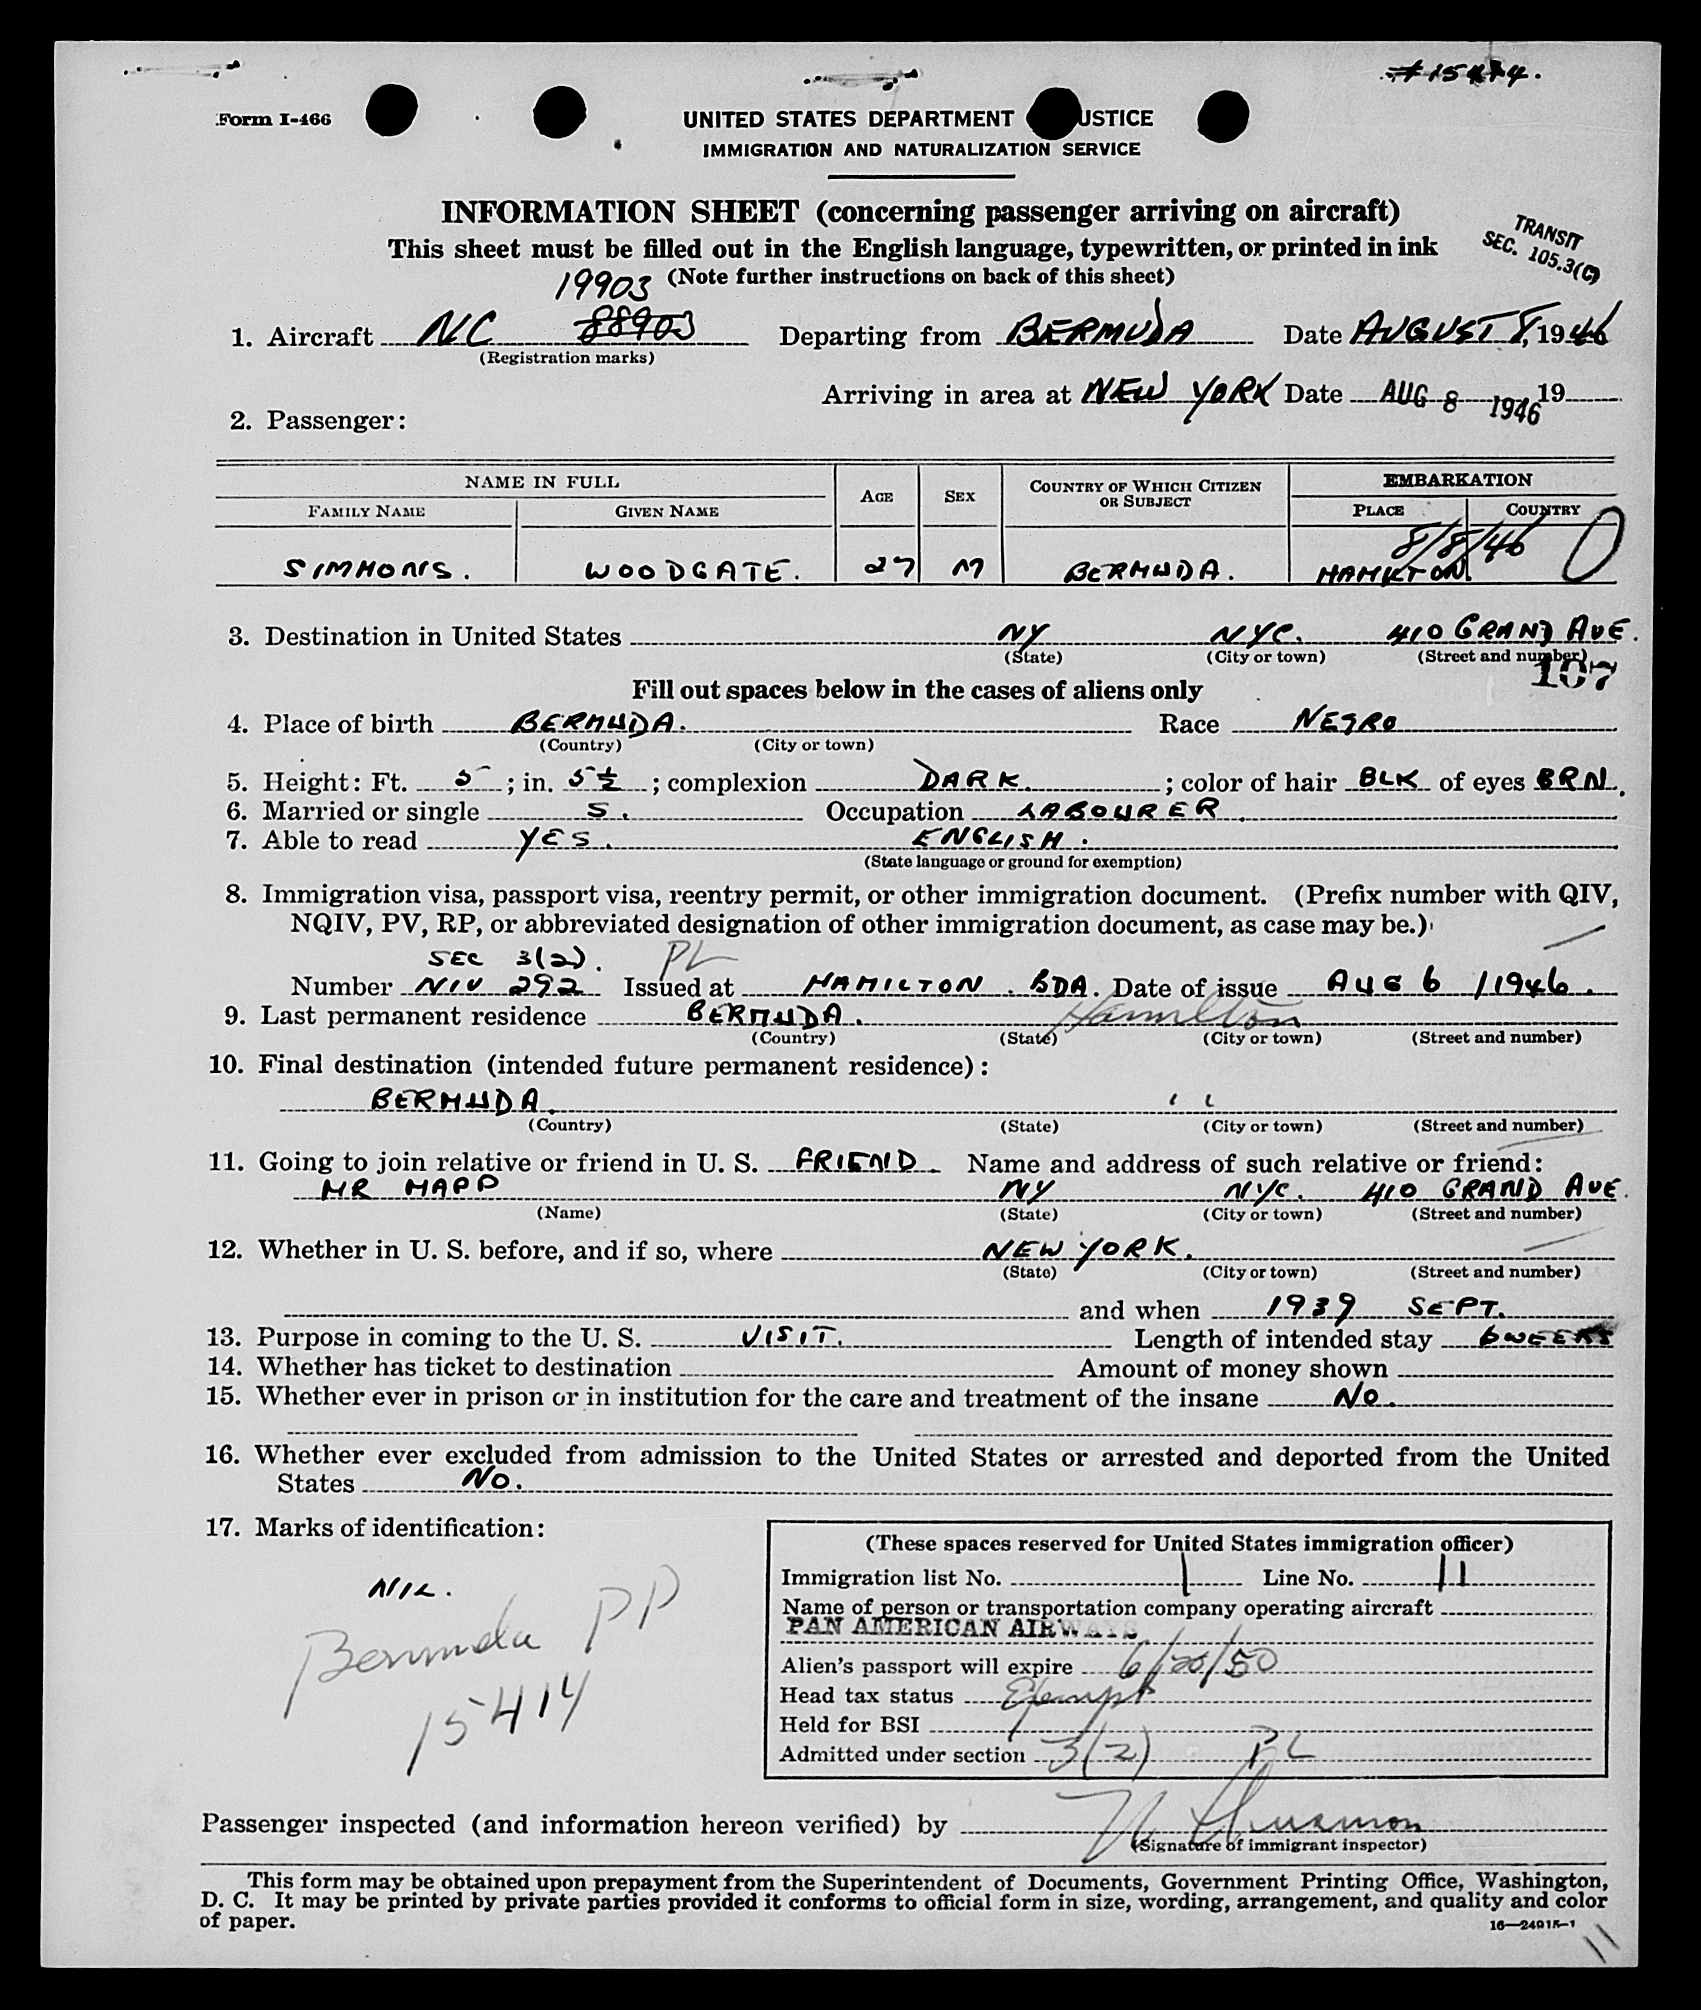 #15414.
Form I-466
UNITED STATES DEPARTMENT USTICE
IMMIGRATION AND NATURALIZATION SERVICE
INFORMATION SHEET (concerning passenger arriving on aircraft)
This sheet must be filled out in the English language, typewritten, or printed in ink
(Note further instructions on back of this sheet)
TRANSIT
SEC. 105.3(C)
19903
1. Aircraft NC 88903 Departing from BERMUDA Date AUGUST 8, 1946
(Registration marks)
Arriving in area at NEW YORK Date AUG 8 1946 19
2. Passenger:
NAME IN FULL AGE SEX COUNTRY OF WHICH CITIZEN OR SUBJECT EMBARKATION
FAMILY NAME GIVEN NAME PLACE COUNTRY
8/8/46 0
SIMMONS. WOODGATE. 27 M BERMUDA. HAMILTON
3. Destination in United States NY NYC. 410 GRAND AVE.
(State) (City or town) (Street and number)
107
Fill out spaces below in the cases of aliens only
4. Place of birth BERMUDA. Race NEGRO
(Country) (City or town)
5. Height: Ft. 5 ; in. 5 ½ ; complexion DARK. ; color of hair BLK of eyes BRN.
6. Married or single S. Occupation LABOURER.
7. Able to read YES. ENGLISH.
(State language or ground for exemption)
8. Immigration visa, passport visa, reentry permit, or other immigration document. (Prefix number with QIV,
NQIV, PV, RP, or abbreviated designation of other immigration document, as case may be.)
SEC 3(2). PL
Number NIV 292 Issued at HAMILTON. BDA. Date of issue AUG 6 /1946.
9. Last permanent residence BERMUDA. Hamilton
(Country) (State) (City or town) (Street and number)
10. Final destination (intended future permanent residence):
BERMUDA. ,,
(Country) (State) (City or town) (Street and number)
11. Going to join relative or friend in U. S. FRIEND. Name and address of such relative or friend:
MR MAPP NY NYC. 410 GRAND AVE.
(Name) (State) (City or town) (Street and number)
12. Whether in U. S. before, and if so, where NEW YORK.
(State) (City or town) (Street and number)
and when 1939 SEPT.
13. Purpose in coming to the U. S. VISIT. Length of intended stay 6 WEEKS
14. Whether has ticket to destination Amount of money shown
15. Whether ever in prison or in institution for the care and treatment of the insane NO.
16. Whether ever excluded from admission to the United States or arrested and deported from the United
States NO.
17. Marks of identification:
NIL.
Bermuda PP
15414
(These spaces reserved for United States immigration officer)
Immigration list No. 1 Line No. 11
Name of person or transportation company operating aircraft
PAN AMERICAN AIRWAYS
Alien's passport will expire 6/20/50
Head tax status Exempt
Held for BSI
Admitted under section 3(2) PL
Passenger inspected (and information hereon verified) by
(Signature of immigrant inspector)
This form may be obtained upon prepayment from the Superintendent of Documents, Government Printing Office, Washington,
D. C. It may be printed by private parties provided it conforms to official form in size, wording, arrangement, and quality and color
of paper.
16—24915-1
11